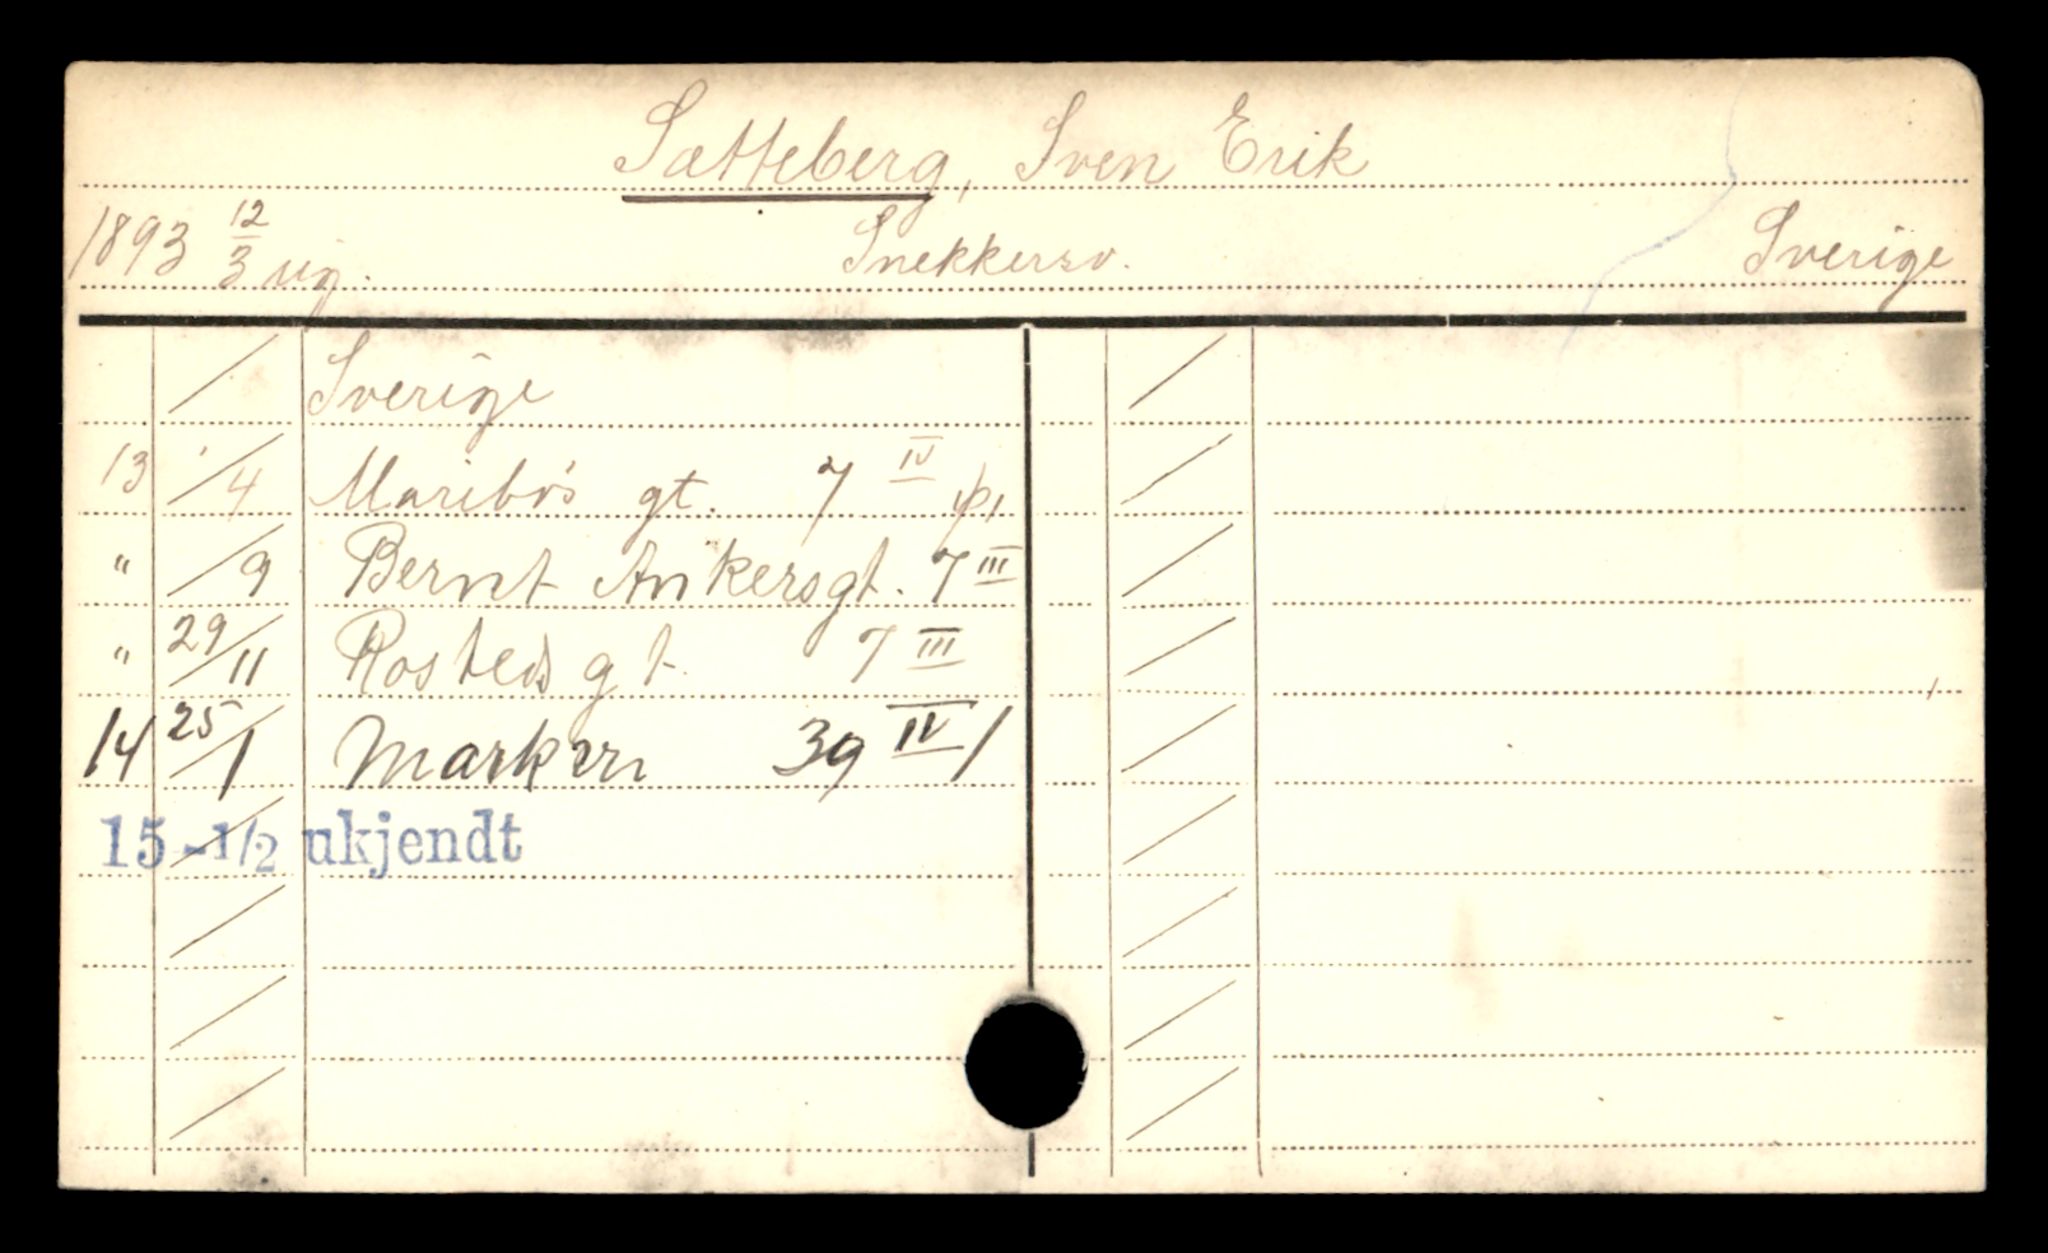 Sætteberg, Sven Erik
1893 12/3 ug. Snekkersv. Sverige
/ Sverige
13 /4 Maribos gt. 7 IV
" /9 Bernt Ankersgt. 7 III
" 29/11 Rosteds gt. 7 III
14 25/1 Marken 39 IV 1
15 -1/2 ukjendt